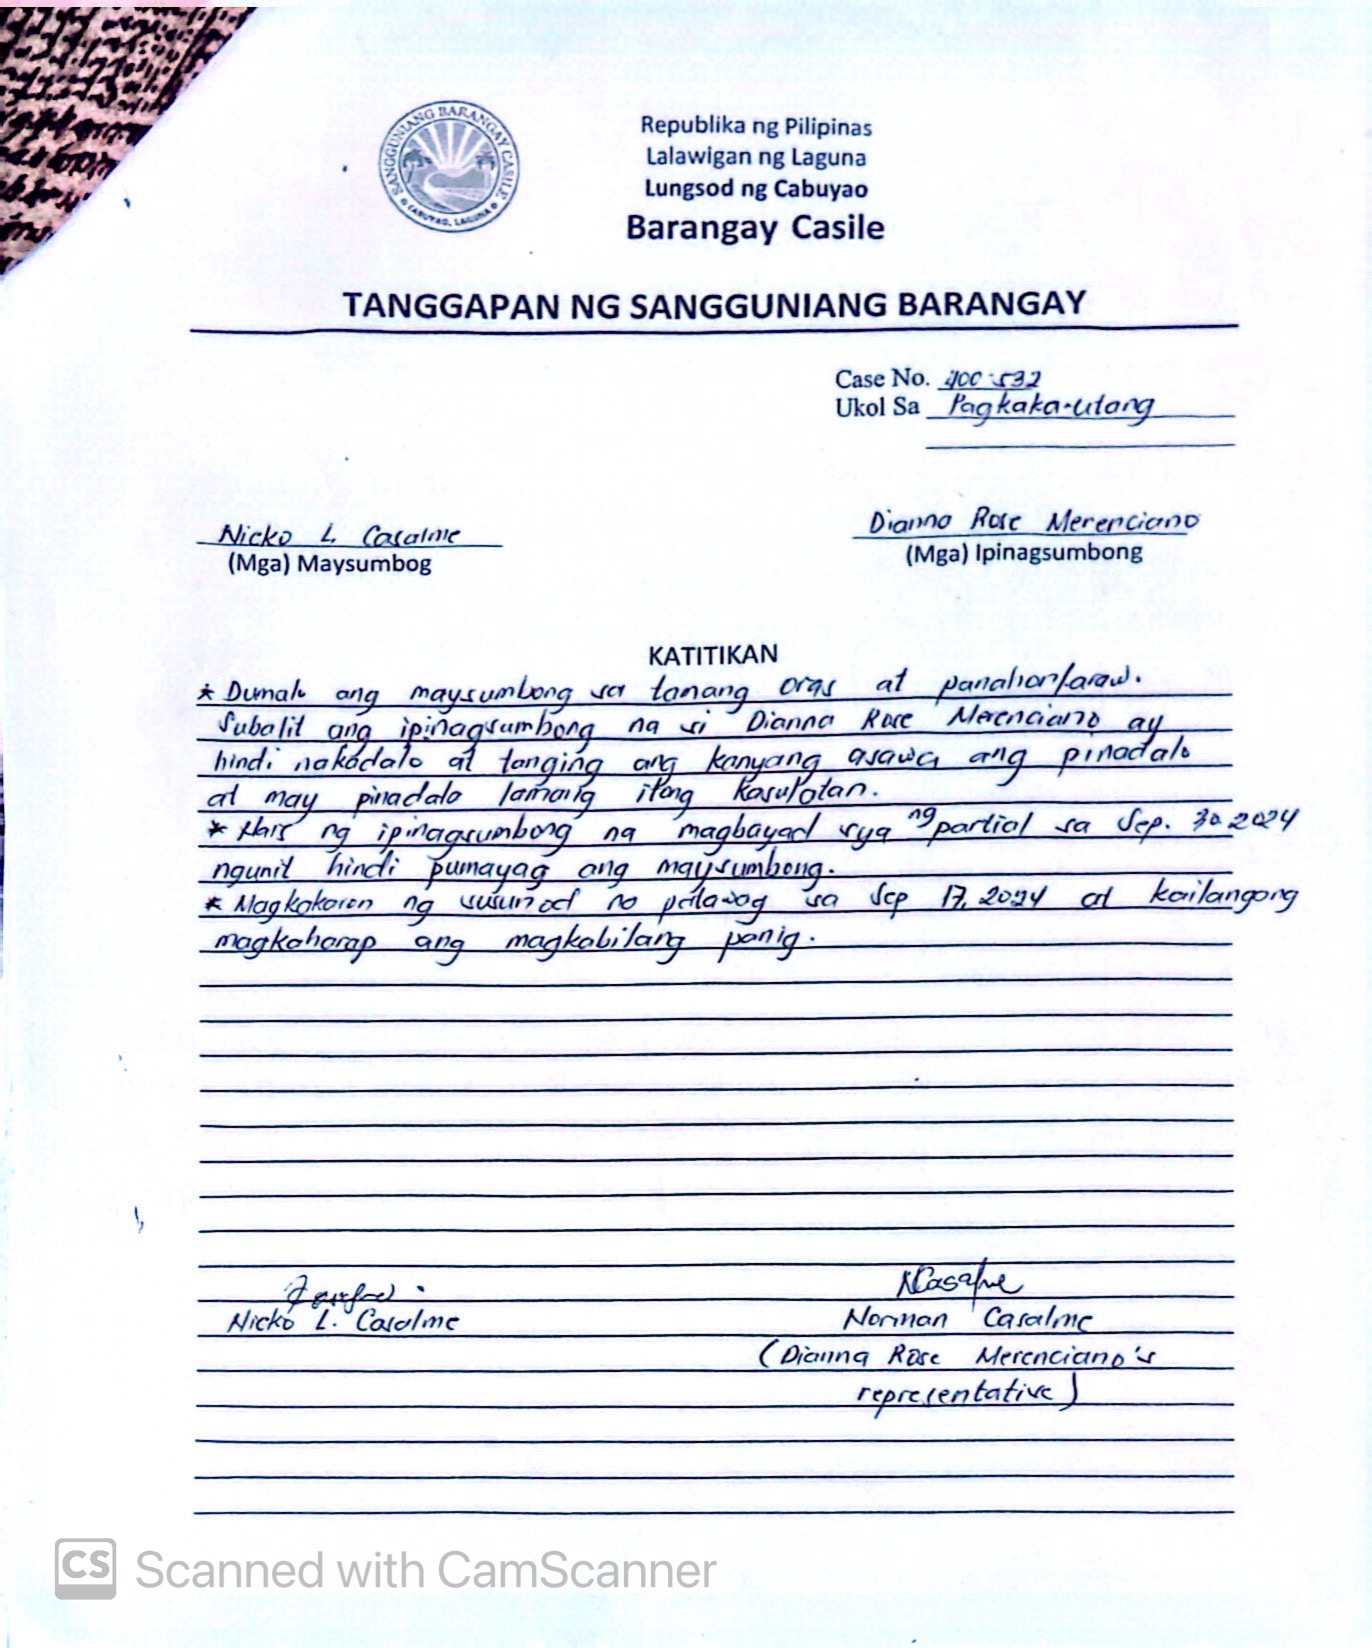 SANGGUNIANG BARANGAY CASILE
CABUYAO, LAGUNA
Republika ng Pilipinas
Lalawigan ng Laguna
Lungsod ng Cabuyao
Barangay Casile
TANGGAPAN NG SANGGUNIANG BARANGAY
Case No. 400-532
Ukol Sa Pagkaka-utang
Nicko L. Casalme
(Mga) Maysumbog
Dianna Rose Merenciano
(Mga) Ipinagsumbong
KATITIKAN
* Dumalo ang maysumbong sa tamang oras at panahon/araw.
Subalit ang ipinagsumbong na si Dianna Rose Merenciano ay
hindi nakadalo at tanging ang kanyang asawa ang pinadalo
at may pinadala lamang itong kasulatan.
* Nais ng ipinagsumbong na magbayad sya ng partial sa Sep. 30 2024
ngunit hindi pumayag ang maysumbong.
* Magkakaron ng susunod na patawag sa Sep 17, 2024 at kailangang
magkaharap ang magkabilang panig.
Nicko L. Casalme
NCasalme
Norman Casalme
(Dianna Rose Merenciano's
representative)
CS Scanned with CamScanner